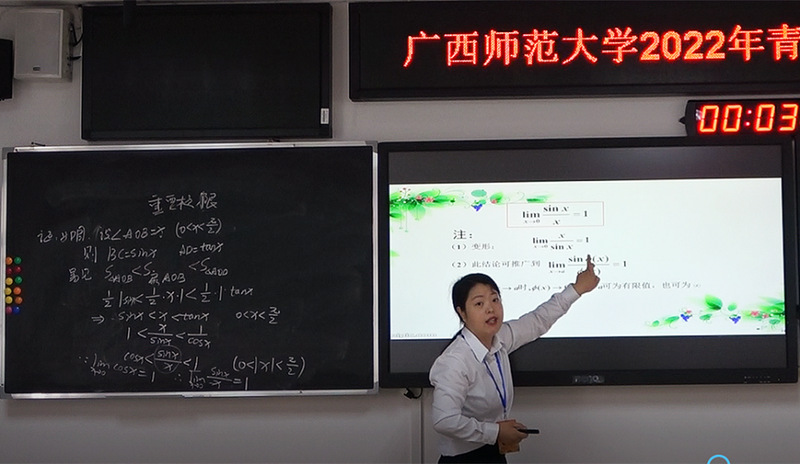 广西师范大学2022年青
00:03
重要极限
证: 如图, 设∠AOB=x (0<x<π/2)
则 BC=sinx AD=tanx
易见 S△AOB<S扇AOB<S△AOD
1/2|sinx|<1/2·x·1<1/2·1·tanx
⇒ sinx<x<tanx 0<x<π/2
1<x/sinx<1/cosx
cosx<sinx/x<1 (0<|x|<π/2)
∵ lim cosx=1 ∴ lim sinx/x=1
lim x→0 sin x/x = 1
注:
(1) 变形: lim x→0 x/sin x = 1
(2) 此结论可推广到 lim x→a sin (x)/ = 1
→ a时, φ(x) → 可为有限值, 也可为 ∞